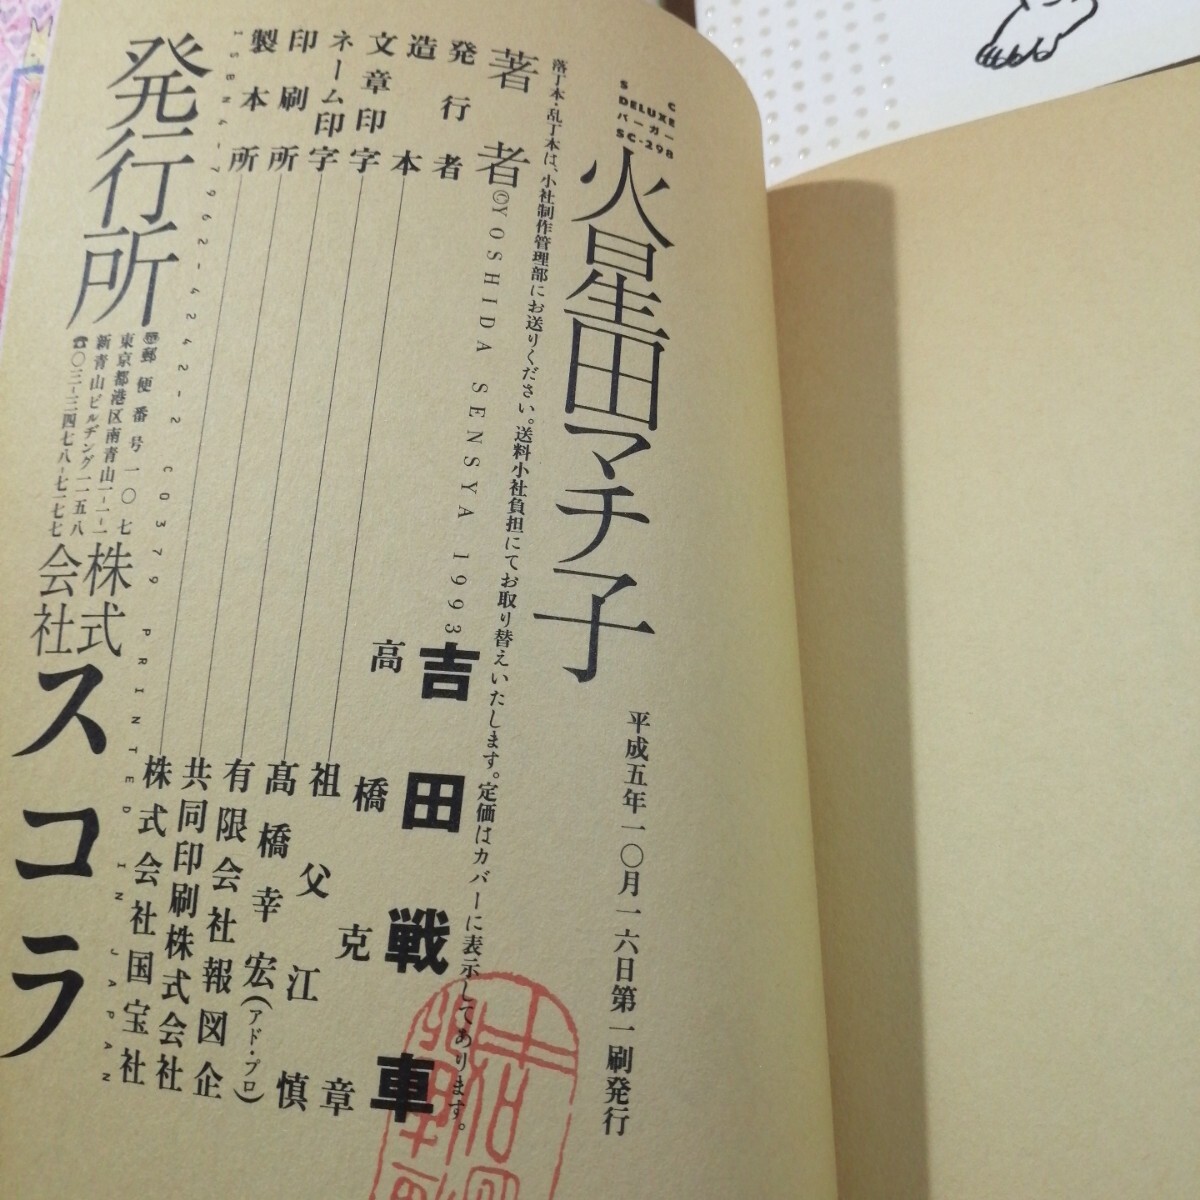 SC
DELUXE
バーガー
SC-298
火星田マチ子
平成五年一〇月一六日第一刷発行
落丁本・乱丁本は、小社制作管理部にお送りください。送料小社負担にてお取り替えいたします。定価はカバーに表示してあります。
著者 吉田戦車
©YOSHIDA SENSYA 1993
発行者 高橋克章
造本 祖父江慎
文章印字 髙橋幸宏(アド・プロ)
ネーム印字 有限会社報図企
印刷所 共同印刷株式会社
製本所 株式会社国宝社
ISBN4-7962-4242-2 C0379 PRINTED IN JAPAN
発行所 株式会社スコラ
〠郵便番号一〇七
東京都港区南青山一-一-一
新青山ビルヂング二一五八
☎〇三-三四七八-七一七七